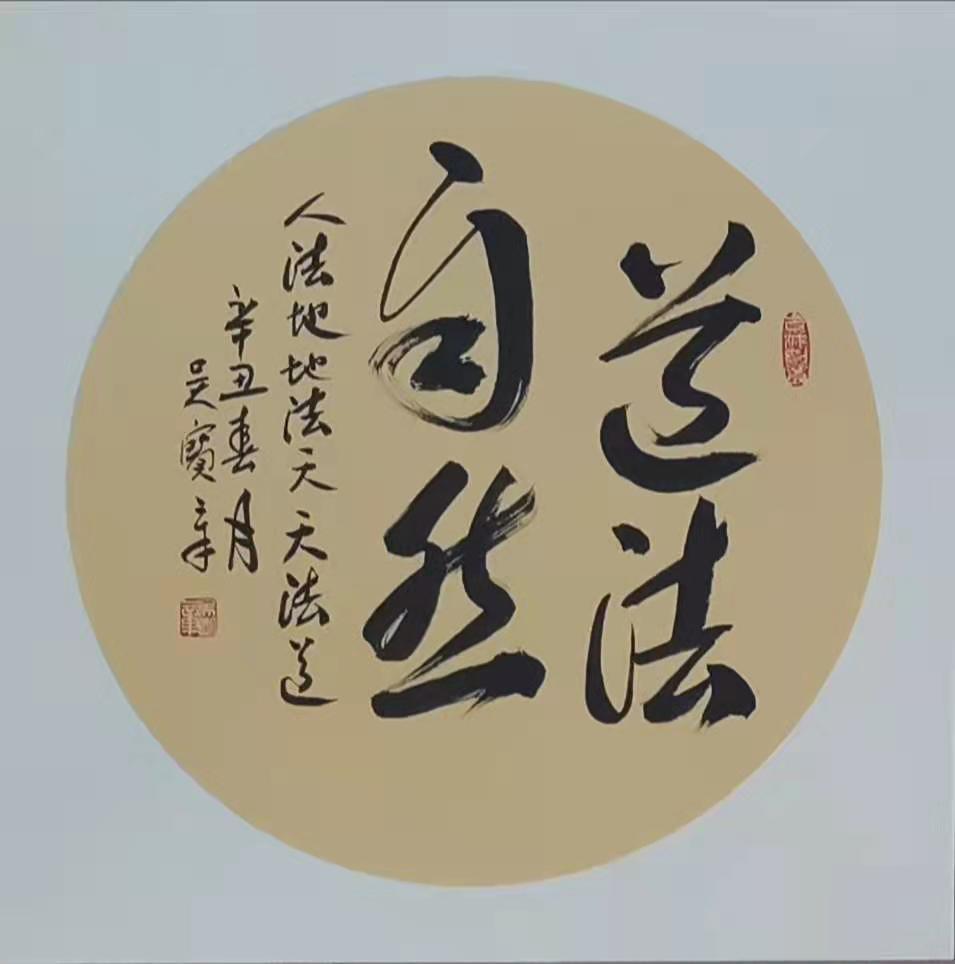 道法
自然
人法地地法天天法道
辛丑春月
吴寶章